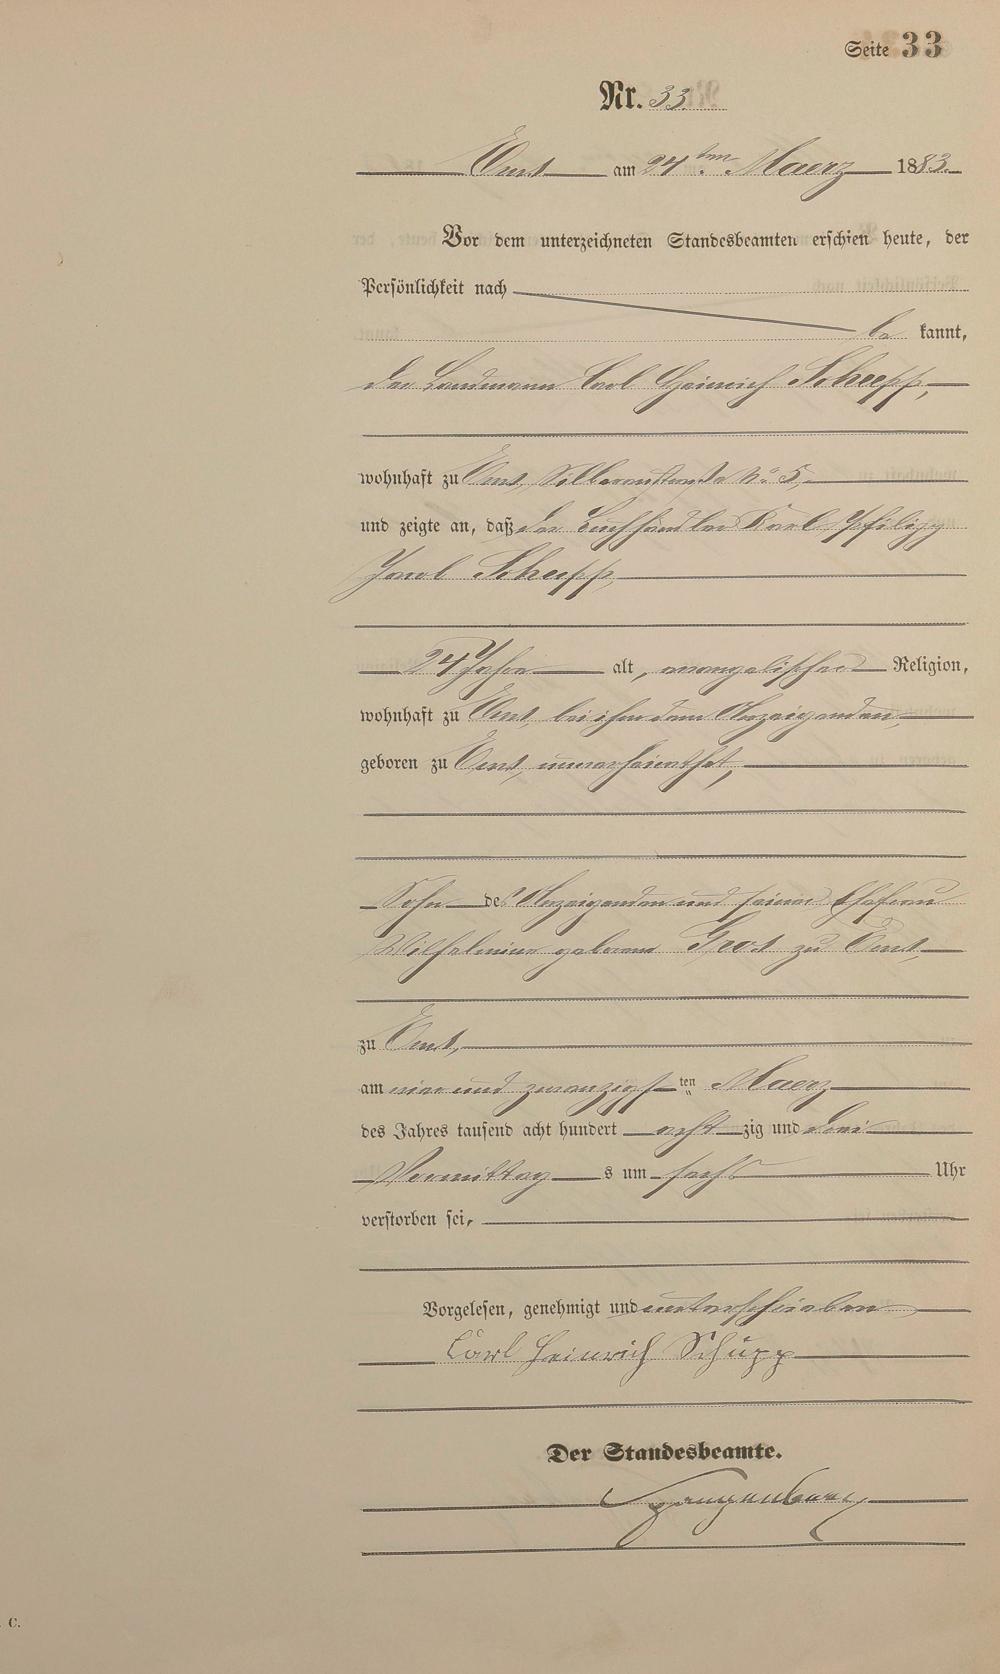 Seite 33
Nr. 33.
Ems am 24ten Maerz 1883.
Vor dem unterzeichneten Standesbeamten erschien heute, der
Persönlichkeit nach
be kannt,
der Landmann Carl Heinrich Schupp,
wohnhaft zu Ems, Silberaustraße No 5,
und zeigte an, daß der Buchhändler Karl Philipp
Schupp,
24 Jahre alt, evangelischer Religion,
wohnhaft zu Ems, bei ihm dem Anzeigenden,
geboren zu Ems, unverheirathet,
Sohn des Anzeigenden und seiner Ehefrau
Wilhelmine geborene Gros zu Ems,
zu Ems,
am vier und zwanzigsten Maerz
des Jahres tausend acht hundert acht zig und drei
Vormittag s um sechs Uhr
verstorben sei,
Vorgelesen, genehmigt und unterschrieben
Carl Heinrich Schupp
Der Standesbeamte.
Spangenberg
C.